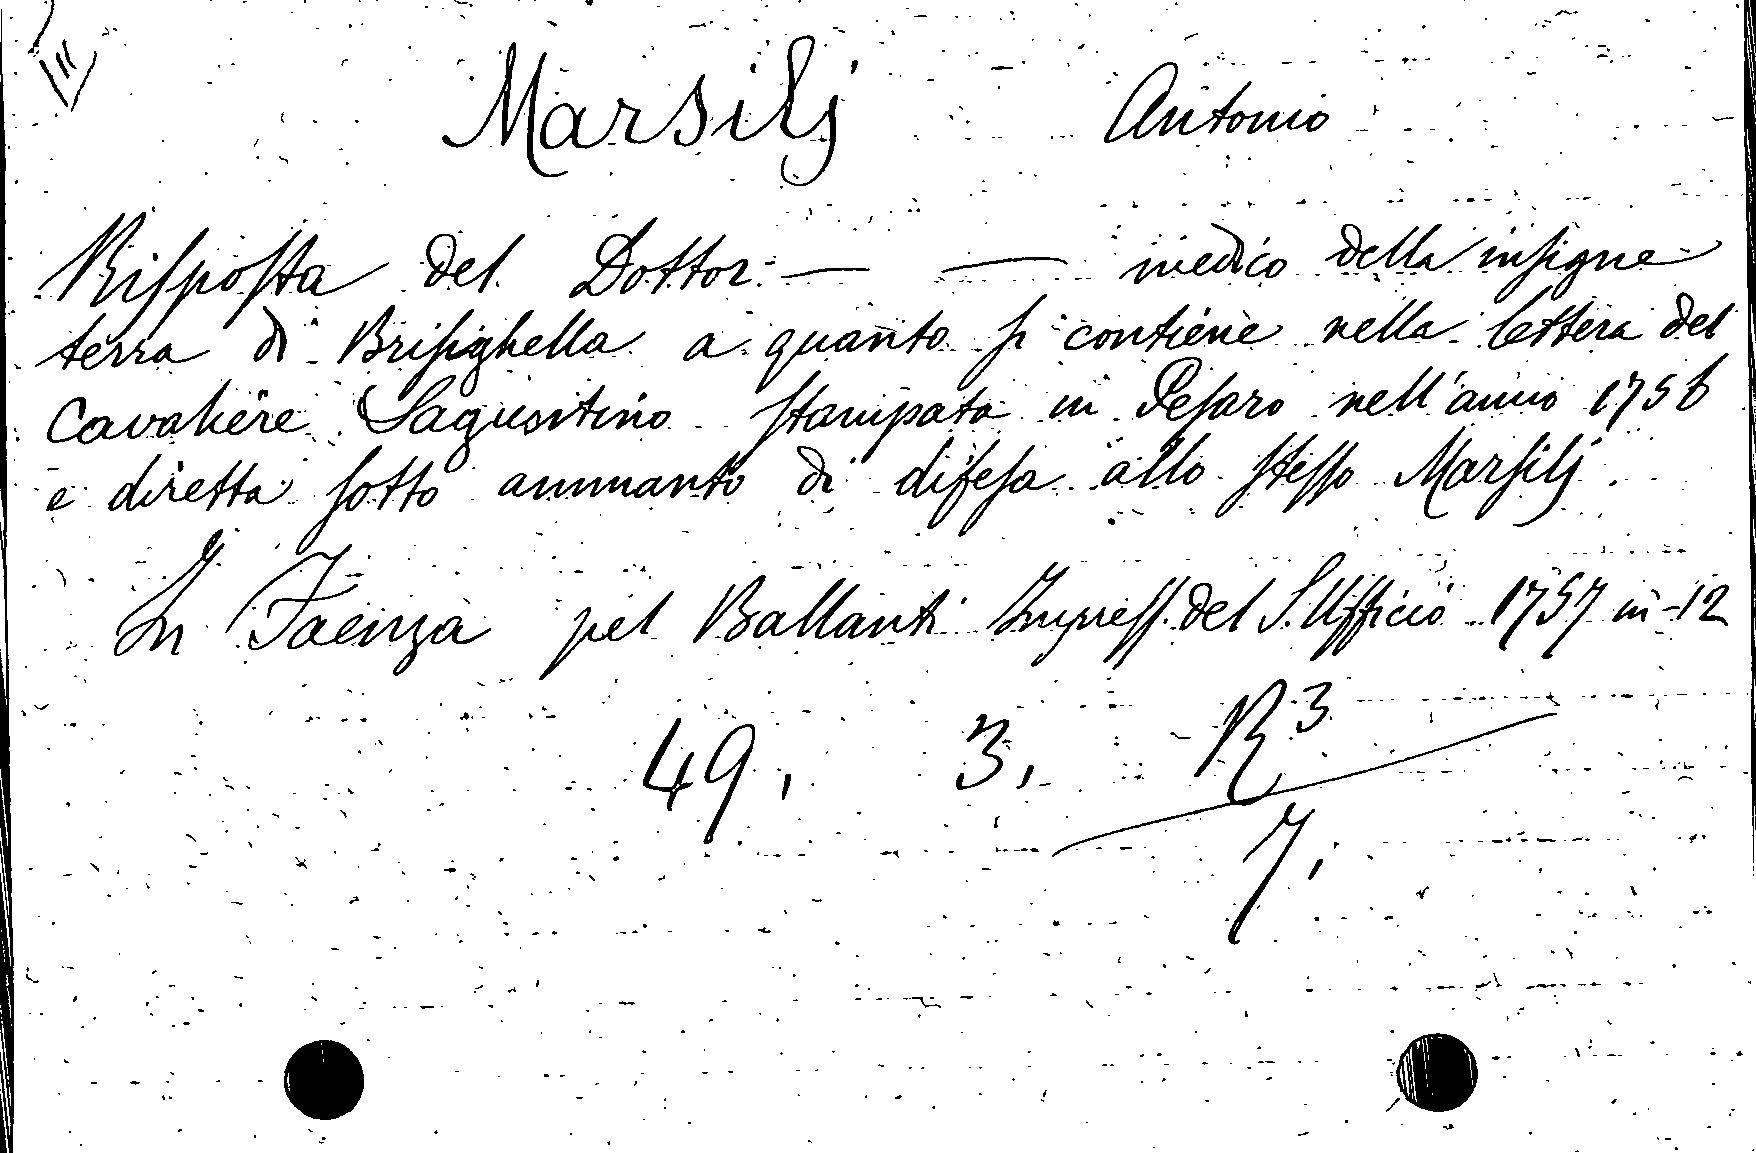 Marsilj Antonio
Risposta del Dottor — — medico della insigne
terra di Brisighella a quanto si contiene nella lettera del
Cavaliere Saguntino stampata in Pesaro nell'anno 1756
e diretta sotto ammanto di difesa allo stesso Marsilj.
In Faenza pel Ballanti Impress. del S. Ufficio 1757 in-12
49, 3, R3
7,